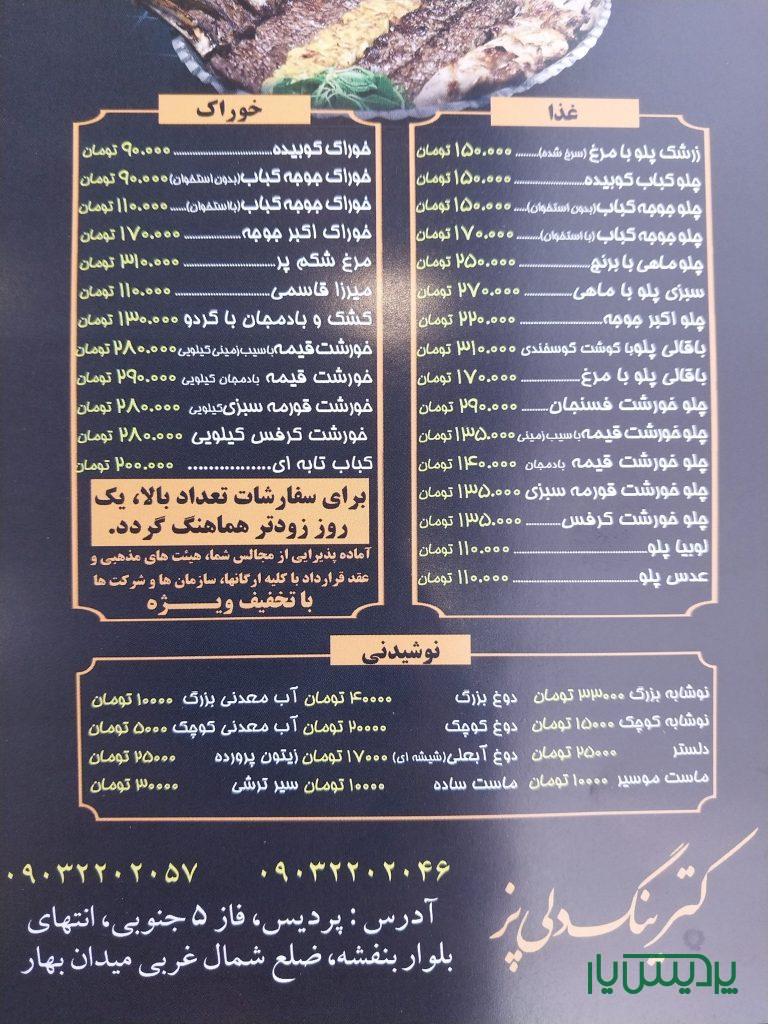 غذا
زرشک پلو با مرغ (سرخ شده)......... ۱۵۰.۰۰۰ تومان
چلو کباب کوبیده........................ ۱۵۰.۰۰۰ تومان
چلو جوجه کباب (بدون استخوان)...... ۱۵۰.۰۰۰ تومان
چلو جوجه کباب (با استخوان)...... ۱۷۰.۰۰۰ تومان
چلو ماهی با برنج........................ ۲۵۰.۰۰۰ تومان
سبزی پلو با ماهی.................. ۲۷۰.۰۰۰ تومان
چلو اکبر جوجه........................ ۲۲۰.۰۰۰ تومان
باقالی پلو با گوشت گوسفندی ۳۱۰.۰۰۰ تومان
باقالی پلو با مرغ.................. ۱۷۰.۰۰۰ تومان
چلو خورشت فسنجان......... ۲۹۰.۰۰۰ تومان
چلو خورشت قیمه با سیب زمینی ۱۳۵.۰۰۰ تومان
چلو خورشت قیمه بادمجان ۱۴۰.۰۰۰ تومان
چلو خورشت قورمه سبزی ۱۳۵.۰۰۰ تومان
چلو خورشت کرفس............ ۱۳۵.۰۰۰ تومان
لوبیا پلو.............................. ۱۱۰.۰۰۰ تومان
عدس پلو.............................. ۱۱۰.۰۰۰ تومان
خوراک
خوراک کوبیده........................ ۹۰.۰۰۰ تومان
خوراک جوجه کباب (بدون استخوان) ۹۰.۰۰۰ تومان
خوراک جوجه کباب (با استخوان)...... ۱۱۰.۰۰۰ تومان
خوراک اکبر جوجه.................. ۱۷۰.۰۰۰ تومان
مرغ شکم پر........................ ۳۱۰.۰۰۰ تومان
میرزا قاسمی........................ ۱۱۰.۰۰۰ تومان
کشک و بادمجان با گردو ۱۳۰.۰۰۰ تومان
خورشت قیمه با سیب زمینی کیلویی ۲۸۰.۰۰۰ تومان
خورشت قیمه بادمجان کیلویی ۲۹۰.۰۰۰ تومان
خورشت قورمه سبزی کیلویی ۲۸۰.۰۰۰ تومان
خورشت کرفس کیلویی ۲۸۰.۰۰۰ تومان
کباب تابه ای.................. ۲۰۰.۰۰۰ تومان
برای سفارشات تعداد بالا، یک
روز زودتر هماهنگ گردد.
آماده پذیرایی از مجالس شما، هیئت های مذهبی و
عقد قرارداد با کلیه ارگانها، سازمان ها و شرکت ها
با تخفیف ویـــژه
نوشیدنی
نوشابه بزرگ ۳۳۰۰۰ تومان دوغ بزرگ ۴۰۰۰۰ تومان آب معدنی بزرگ ۱۰۰۰۰ تومان
نوشابه کوچک ۱۵۰۰۰ تومان دوغ کوچک ۲۰۰۰۰ تومان آب معدنی کوچک ۵۰۰۰ تومان
دلستر ۲۵۰۰۰ تومان دوغ آبعلی (شیشه ای) ۱۷۰۰۰ تومان زیتون پرورده ۲۵۰۰۰ تومان
ماست موسیر ۱۰۰۰۰ تومان ماست ساده ۱۰۰۰۰ تومان سیر ترشی ۳۰۰۰۰ تومان
کترینگ دلی پز
۰۹۰۳۲۲۰۲۰۴۶ ۰۹۰۳۲۲۰۲۰۵۷
آدرس : پردیس، فاز ۵ جنوبی، انتهای
بلوار بنفشه، ضلع شمال غربی میدان بهار
پردیس یار